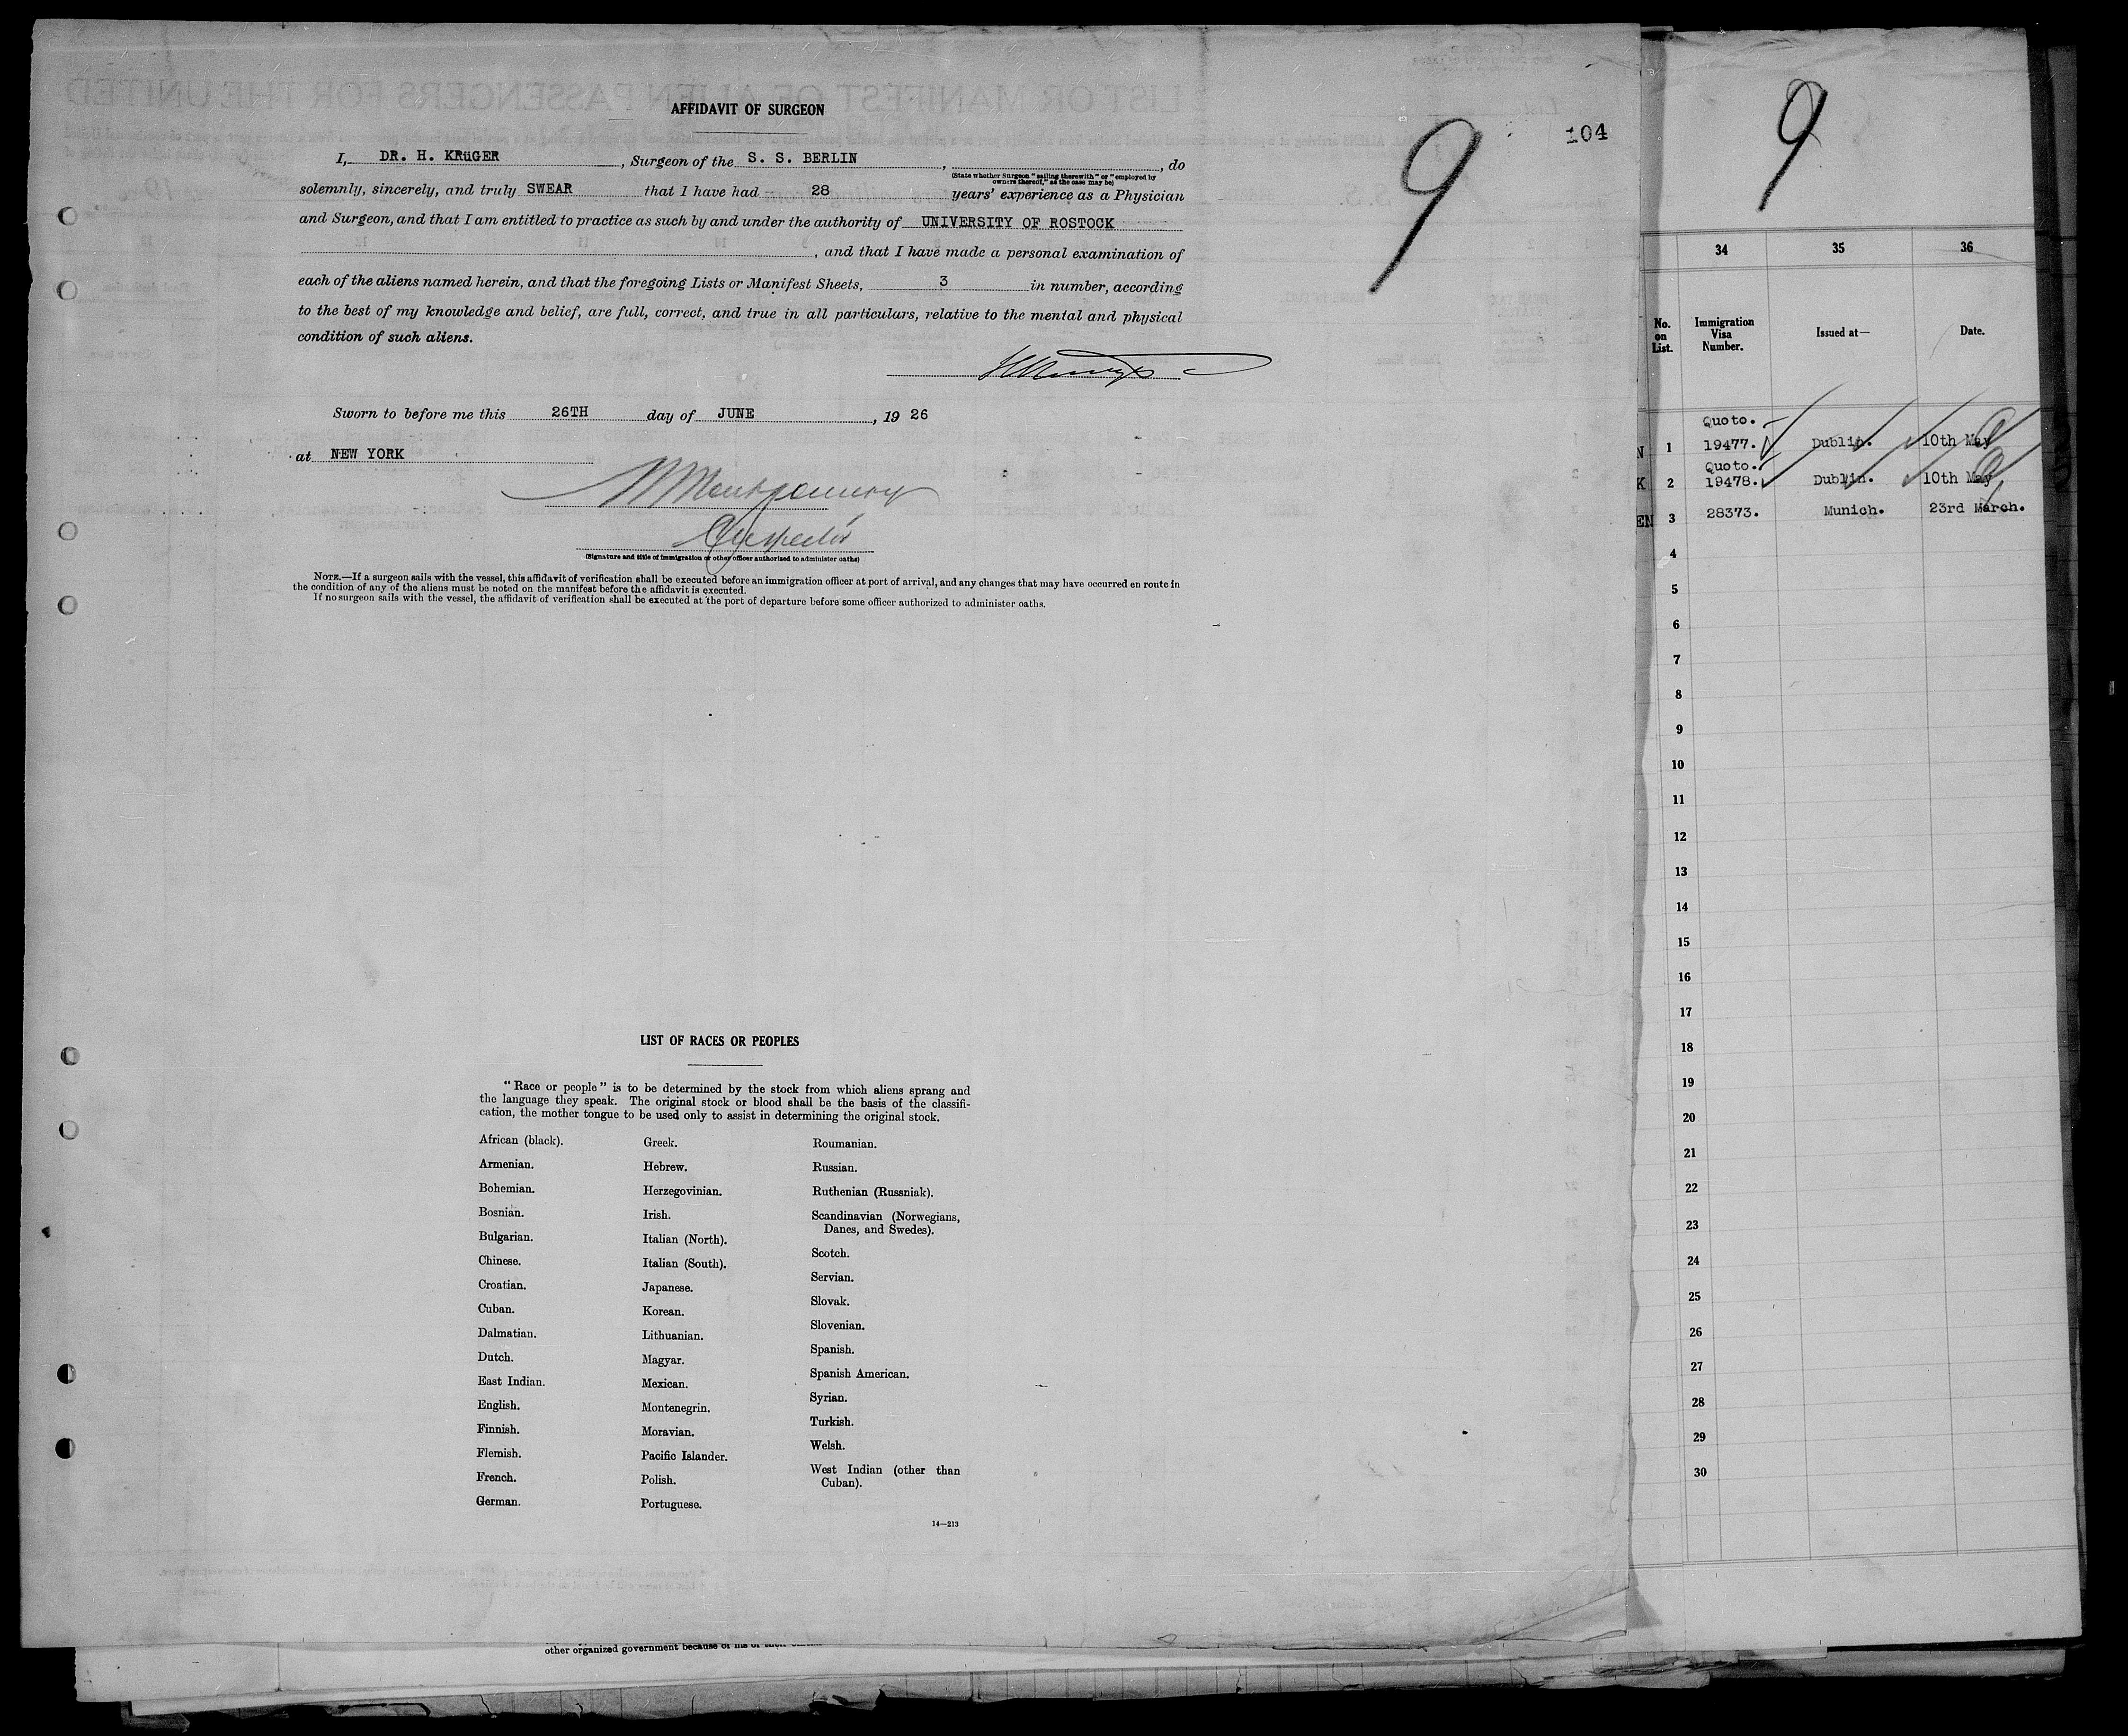 AFFIDAVIT OF SURGEON
9
104
I, DR. H. KRüGER, Surgeon of the S. S. BERLIN, , do
(State whether Surgeon "sailing therewith" or "employed by
owners thereof," as the case may be)
solemnly, sincerely, and truly SWEAR that I have had 28 years' experience as a Physician
and Surgeon, and that I am entitled to practice as such by and under the authority of UNIVERSITY OF ROSTOCK
, and that I have made a personal examination of
each of the aliens named herein, and that the foregoing Lists or Manifest Sheets, 3 in number, according
to the best of my knowledge and belief, are full, correct, and true in all particulars, relative to the mental and physical
condition of such aliens.
Sworn to before me this 26TH day of JUNE, 19 26
at NEW YORK
Montgomery
Inspector
(Signature and title of immigration or other officer authorized to administer oaths)
NOTE.—If a surgeon sails with the vessel, this affidavit of verification shall be executed before an immigration officer at port of arrival, and any changes that may have occurred en route in
the condition of any of the aliens must be noted on the manifest before the affidavit is executed.
If no surgeon sails with the vessel, the affidavit of verification shall be executed at the port of departure before some officer authorized to administer oaths.
LIST OF RACES OR PEOPLES
"Race or people" is to be determined by the stock from which aliens sprang and
the language they speak. The original stock or blood shall be the basis of the classifi-
cation, the mother tongue to be used only to assist in determining the original stock.
African (black).
Armenian.
Bohemian.
Bosnian.
Bulgarian.
Chinese.
Croatian.
Cuban.
Dalmatian.
Dutch.
East Indian.
English.
Finnish.
Flemish.
French.
German.
Greek.
Hebrew.
Herzegovinian.
Irish.
Italian (North).
Italian (South).
Japanese.
Korean.
Lithuanian.
Magyar.
Mexican.
Montenegrin.
Moravian.
Pacific Islander.
Polish.
Portuguese.
Roumanian.
Russian.
Ruthenian (Russniak).
Scandinavian (Norwegians,
Danes, and Swedes).
Scotch.
Servian.
Slovak.
Slovenian.
Spanish.
Spanish American.
Syrian.
Turkish.
Welsh.
West Indian (other than
Cuban).
14—213
other organized government because of his or
9
34 35 36
No. on List. Immigration Visa Number. Issued at— Date.
Quoto.
N 1 19477. Dublin. 10th May
Quoto.
K 2 19478. Dublin. 10th May
EN 3 28373. Munich. 23rd March.
4
5
6
7
8
9
10
11
12
13
14
15
16
17
18
19
20
21
22
23
24
25
26
27
28
29
30